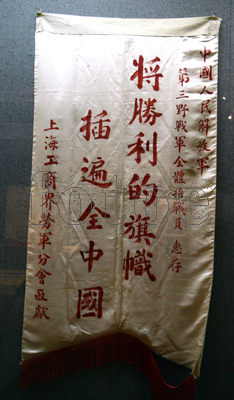 中國人民解放軍
第三野戰軍全體指戰員 惠存
將勝利的旗幟
插遍全中國
上海工商界勞軍分會敬獻